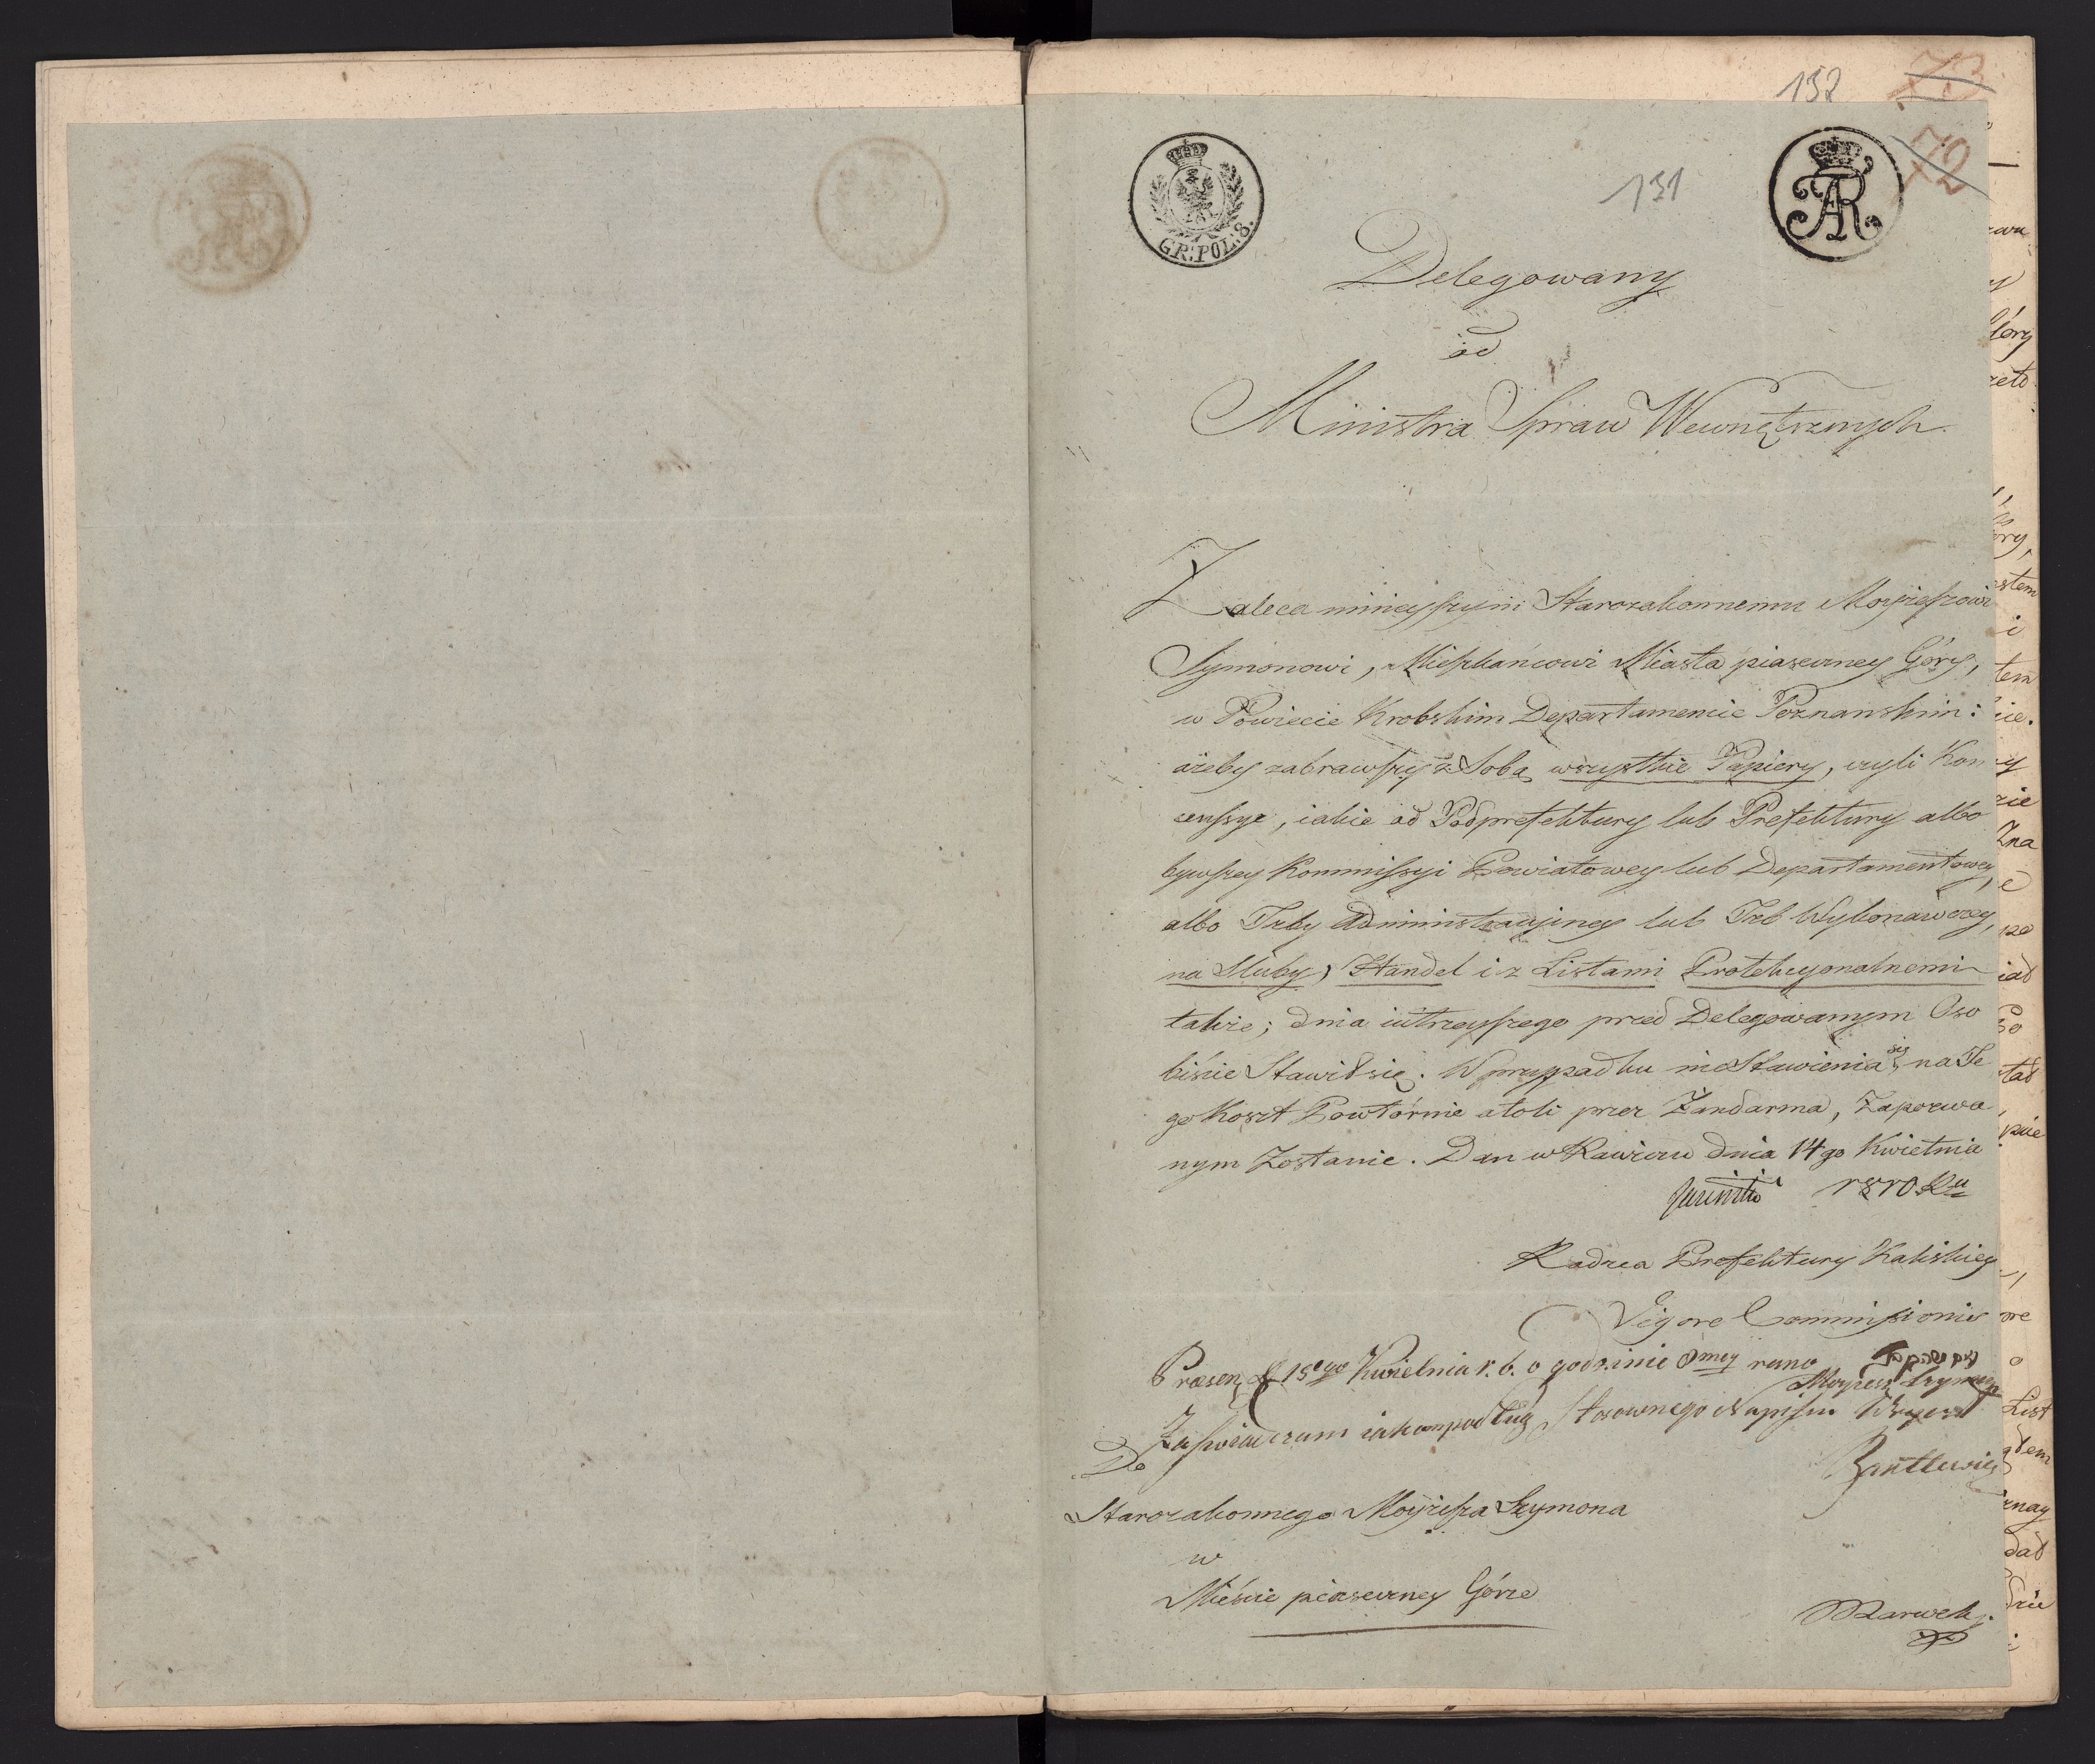 152
73
72
131
GR: POL: 8.
AR
Delegowany
od
Ministra Spraw Wewnętrznych
Zaleca ninieyszym Starozakonnemu Moyżeszowi
Symonowi, Mieszkańcowi Miasta piaseczney Góry,
w Powiecie Krobskim Departamencie Poznanskim:
ażeby zabrawszy z Sobą wszystkie Papiery, czyli Kon
censsye, iakie od Podprefektury lub Prefektury albo
bywszey Kommissyi Powiatowey lub Departamentowey,
albo Izby Administracyiney lub Izb Wykonawczey,
na Sluby, Handel i z Listami Protekcyonalnemi
także; dnia iutrzeyszego przed Delegowanym Oso
biście Stawił się. W przypadku nieStawienia się na Je
go Koszt Powtórnie atoli przez Żandarma, Zapozwa
nym Zostanie. Dan w Rawiczu dnia 14go Kwietnia
1810 Ru
Radzca Prefektury Kaliskiey
Vigore Commissionis
Præsen d 15ego Kwietnia r. b. o godzinie 8mey rano
Moyzesz Szymon
Zaswiadczam iako podług Stosownego Napisu
Do
Starozakonnego Moyżesza Szymona
w
Mieście piaseczney Górze